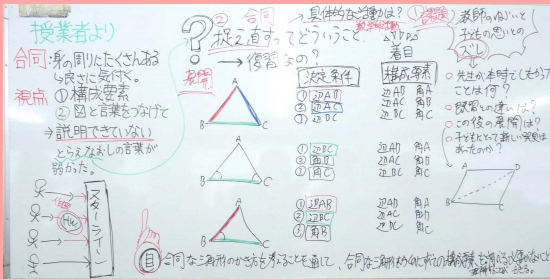 授業者より
合同・身の周りにたくさんある
→良さに気付く。
視点 ①構成要素
②図と言葉をつなげて
→説明できていない
とらえなおしの言葉が
弱かった。
スタートライン
② 合同
捉え直すってどういうこと
→復習なの?
→具体的な
着目
決定条件
構成要素
A
B
C
①辺AB
②辺AC
③辺BC
辺AB 角A
辺AC 角B
辺BC 角C
A
B
C
①辺BC
②角B
③角C
辺AB 角A
辺AC 角B
辺BC 角C
A
B
C
①辺AB
②辺BC
③角B
辺AB 角A
辺AC 角B
辺BC 角C
①
教師のねがいと
子どもの思いとの
ズレ
○先生が本時でしたかった
ことは何?
○既習との違いは?
○この後の展開は?
○子どもにとって新しい発見は
あったのか?
A
D
B
C
目 合同な三角形のかき方を考えることを通して、合同な三角形をかくためには